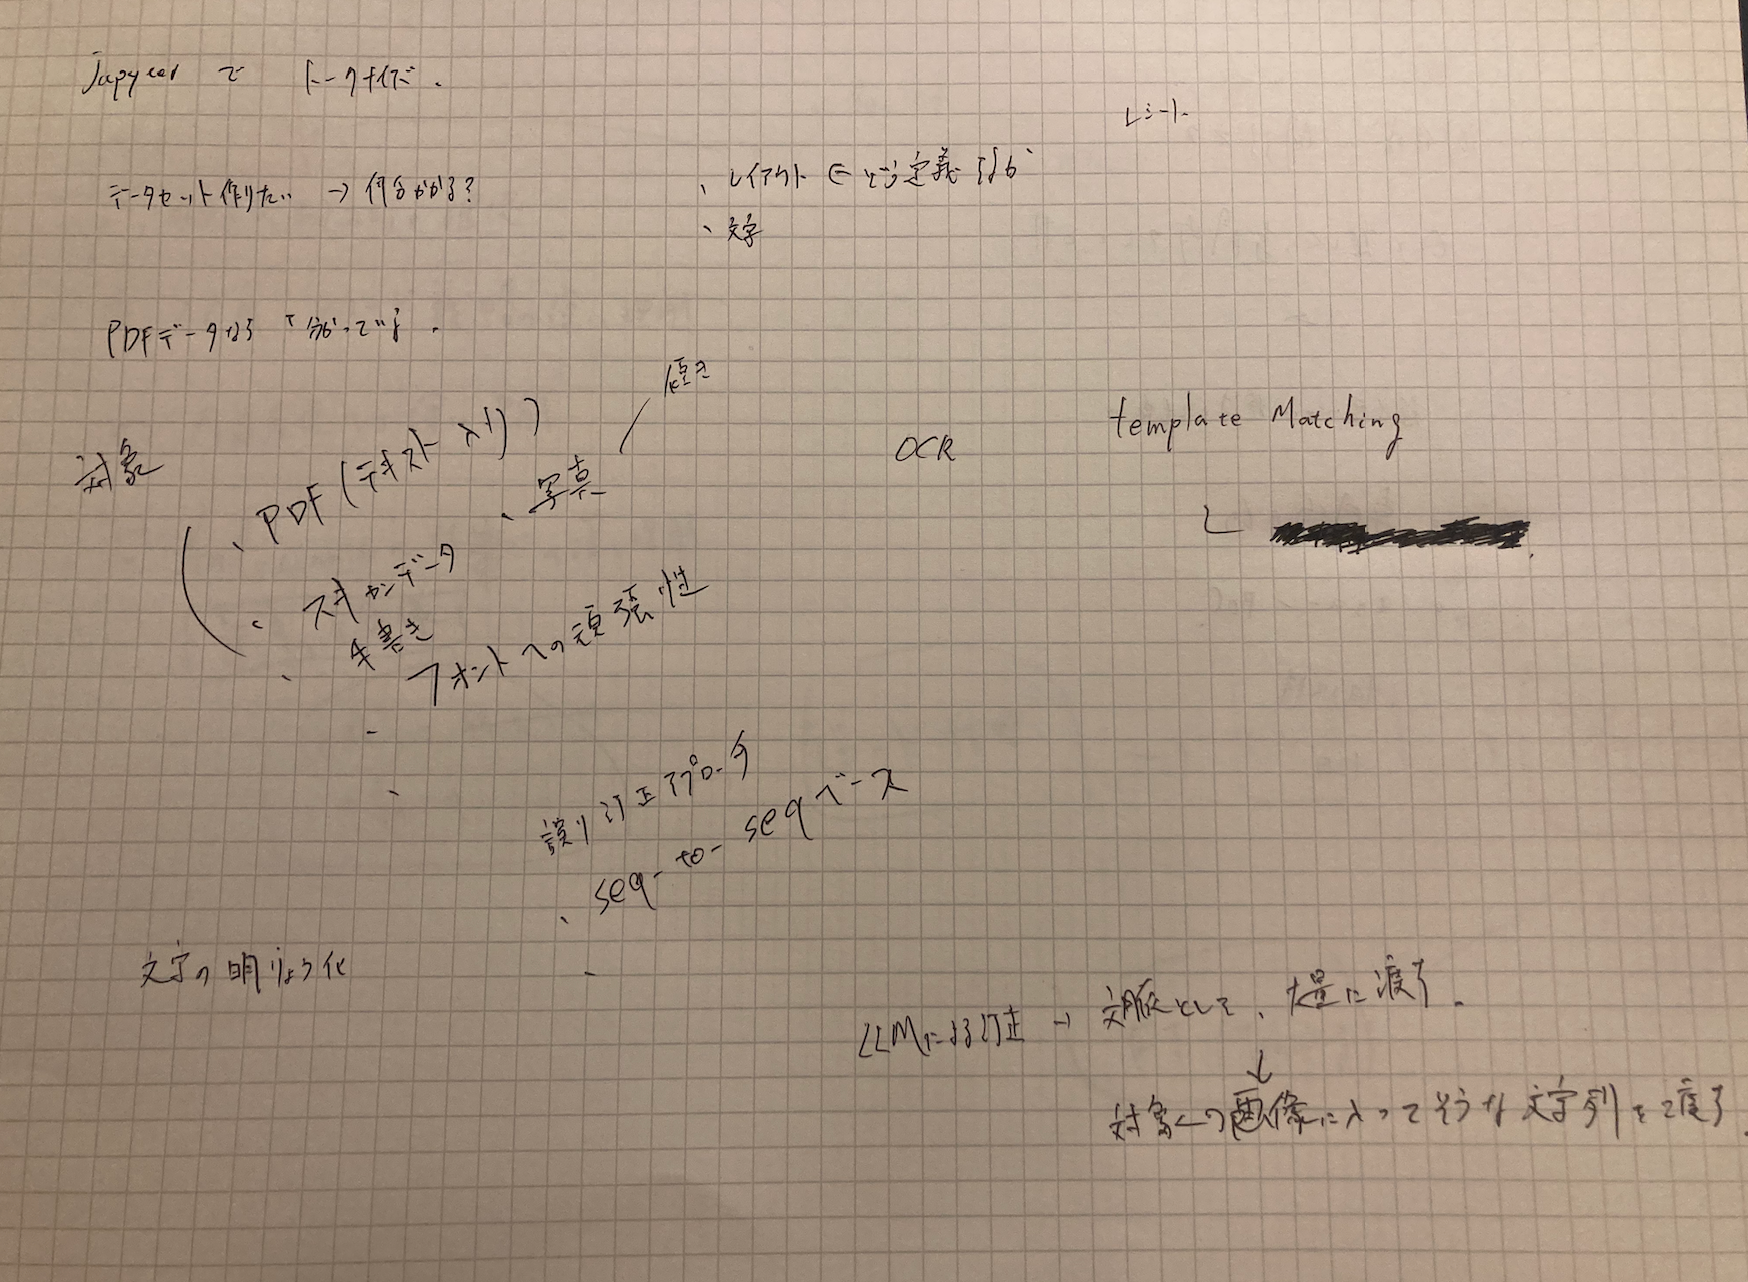 で トークナイズ.
レシート
データセット作りたい → 何分かかる?
、レイアウト ← どう定義するか
、文字
PDFデータなら
傾き
対象
、PDF(テキスト入り)
、写真
OCR
template Matching
、スキャンデータ
手書き
フォントへの頑張性
誤り訂正アプローチ
、seq-to-seqベース
文字の明りょう化
LLMによる訂正 → 文脈として、大量に渡す.
↓
対象の画像に入ってそうな文字列を渡す.